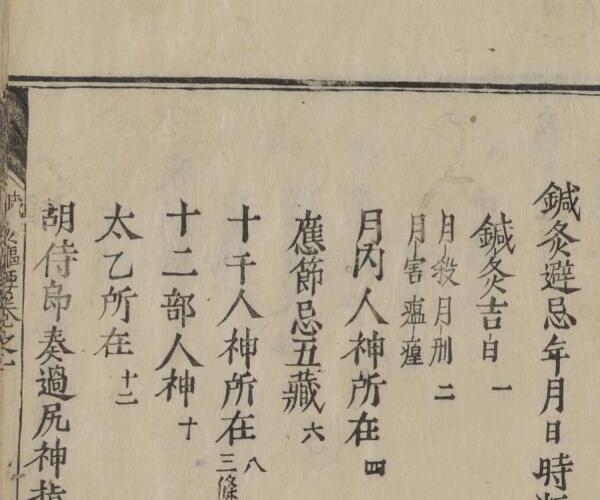 鍼灸避忌年月日時
鍼灸吉日 一
月殺月刑 二
月害瘟𤶊
月內人神所在 四
應節忌五藏 六
十干人神所在 八
三條
十二部人神 十
太乙所在 十二
胡侍郎奏過尻神指